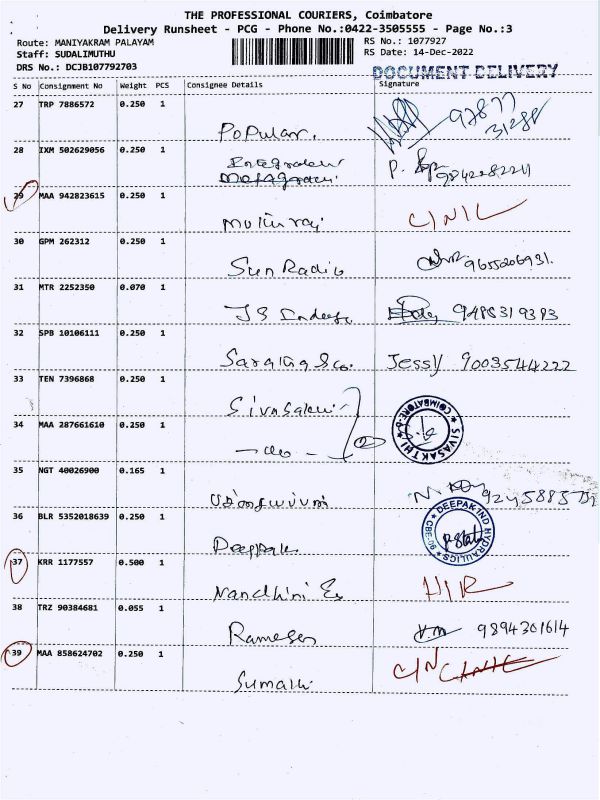 THE PROFESSIONAL COURIERS, Coimbatore
Delivery Runsheet - PCG - Phone No.:0422-3505555 - Page No.:3
Route: MANIYAKRAM PALAYAM RS No.: 1077927
Staff: SUDALIMUTHU RS Date: 14-Dec-2022
DRS No.: DCJB107792703 DOCUMENT DELIVERY
S No Consignment No Weight PCS Consignee Details Signature
27 TRP 7886572 0.250 1
Popular. 97877
31288
28 IXM 502629056 0.250 1
P. 9842282211
29 MAA 942823615 0.250 1
Muthuraj C/N/L
30 GPM 262312 0.250 1
Sun Radio 9655206931.
31 MTR 2252350 0.070 1
JS 9488319383
32 SPB 10106111 0.250 1
Jessy 9003544222
33 TEN 7396868 0.250 1
Sivasakthi
34 MAA 287661610 0.250 1
- do - 2
SIVASAKTHI COIMBATORE-6
35 NGT 40026900 0.165 1
36 BLR 5352018639 0.250 1
Deepak
DEEPAK IND HYDRAULICS CBE-06
37 KRR 1177557 0.500 1
Nandhini Es H/R
38 TRZ 90384681 0.055 1
Ramesh V.M 9894301614
39 MAA 858624702 0.250 1
Sumathi C/N